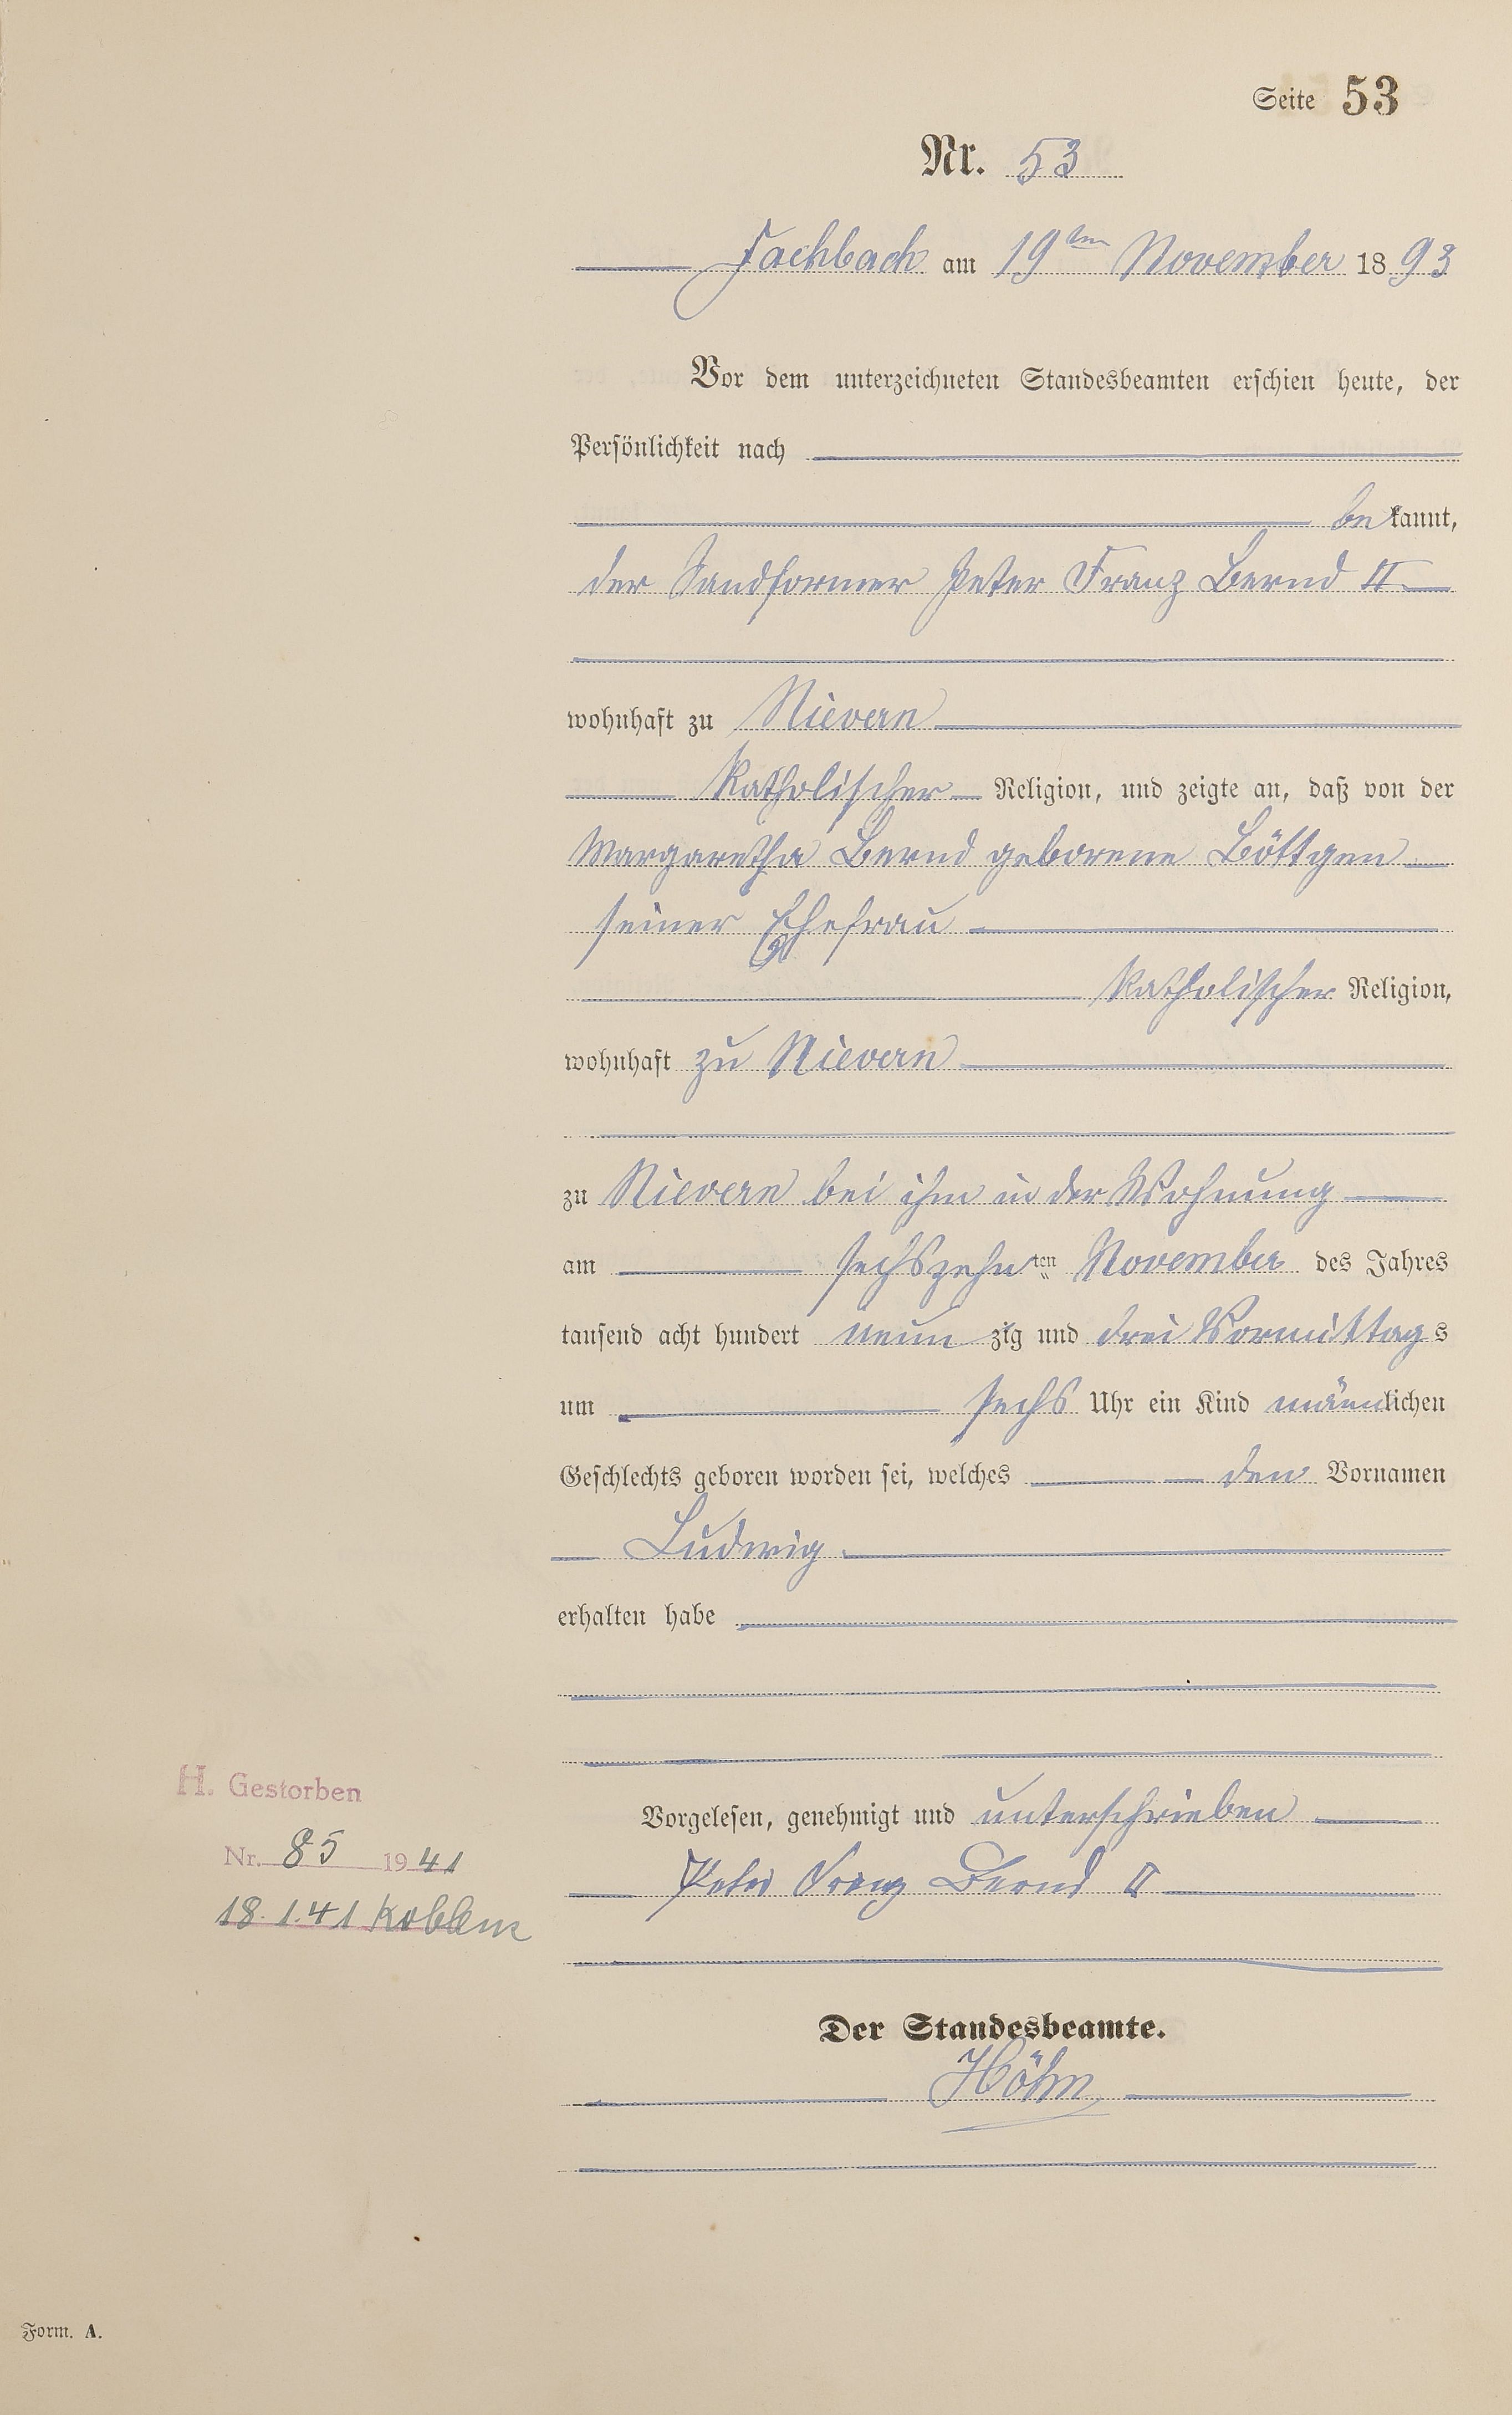 Seite 53
Nr. 53
Fachbach am 19ten November 1893
Vor dem unterzeichneten Standesbeamten erschien heute, der
Persönlichkeit nach
bekannt,
der Sandformer Peter Franz Bernd II
wohnhaft zu Nievern
katholischer Religion, und zeigte an, daß von der
Margaretha Bernd geborene Böttgen
seiner Ehefrau
katholischer Religion,
wohnhaft zu Nievern
zu Nievern bei ihm in der Wohnung
am sechszehnten November des Jahres
tausend acht hundert neunzig und drei Vormittags
um sechs Uhr ein Kind männlichen
Geschlechts geboren worden sei, welches den Vornamen
Ludwig
erhalten habe
H. Gestorben
Nr. 85 1941
18.1.41 Koblenz
Vorgelesen, genehmigt und unterschrieben
Peter Franz Bernd II
Der Standesbeamte.
Höhn
Form. A.